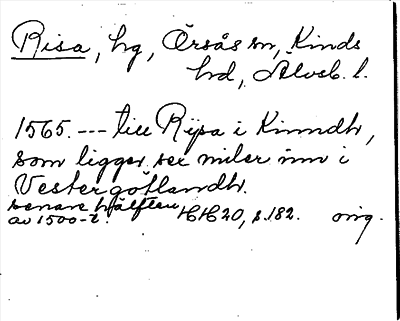 Risa, hg, Örsås sn, Kinds
hd, Älvsb. l.
1565. --- till Rysa i Kinndh,
som ligger sex miler inn i
Vestergötlandh.
senare hälften
av 1500-t. HH 20, s. 182. orig.